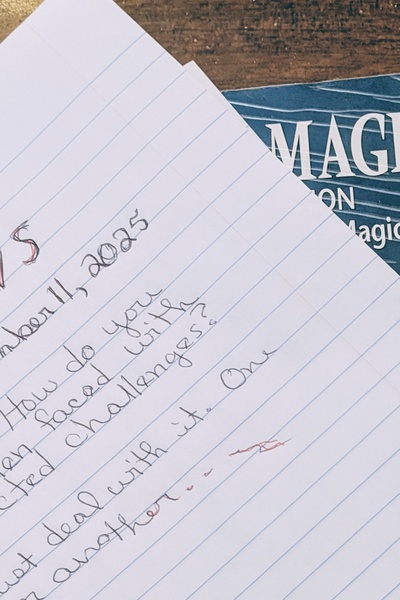 MAGI
ON
Magic
VS
mber 11, 2025
How do you
en faced with
cted challenges?
ust deal with it. One
r another...